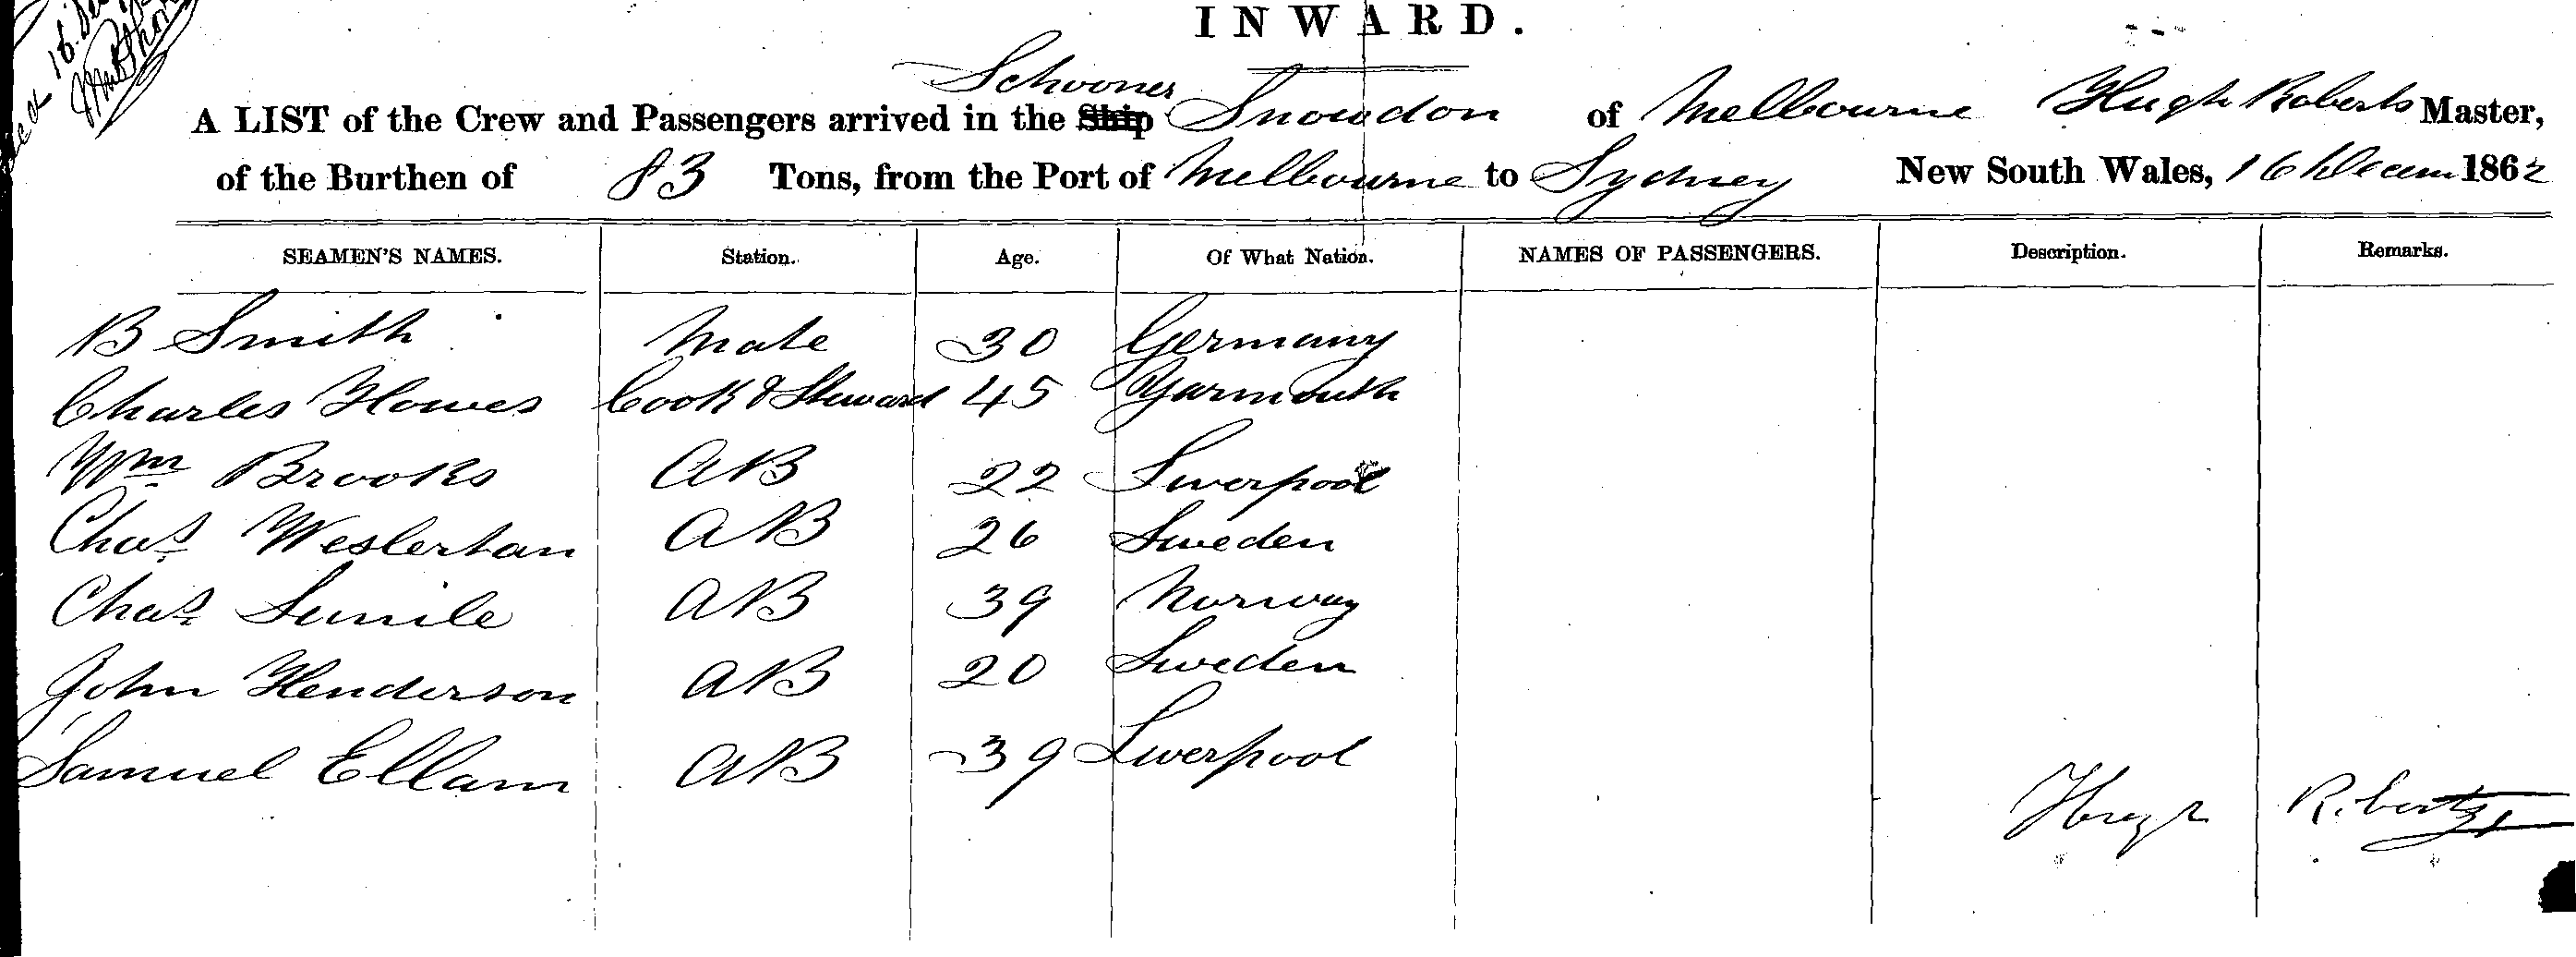 INWARD.
Schooner
A LIST of the Crew and Passengers arrived in the Ship Snowdon of Melbourne Hugh Roberts Master,
of the Burthen of 83 Tons, from the Port of Melbourne to Sydney New South Wales, 16 Decem 1862
SEAMEN'S NAMES. Station. Age. Of What Nation. NAMES OF PASSENGERS. Description. Remarks.
B Smith Mate 30 Germany
Charles Howes Cook & Steward 45 Yarmouth
Wm Brooks AB 22 Liverpool
Chas Weslertan AB 26 Sweden
Chas AB 39 Norway
John Henderson AB 20 Sweden
Samuel Ellam AB 39 Liverpool
Hugh Roberts